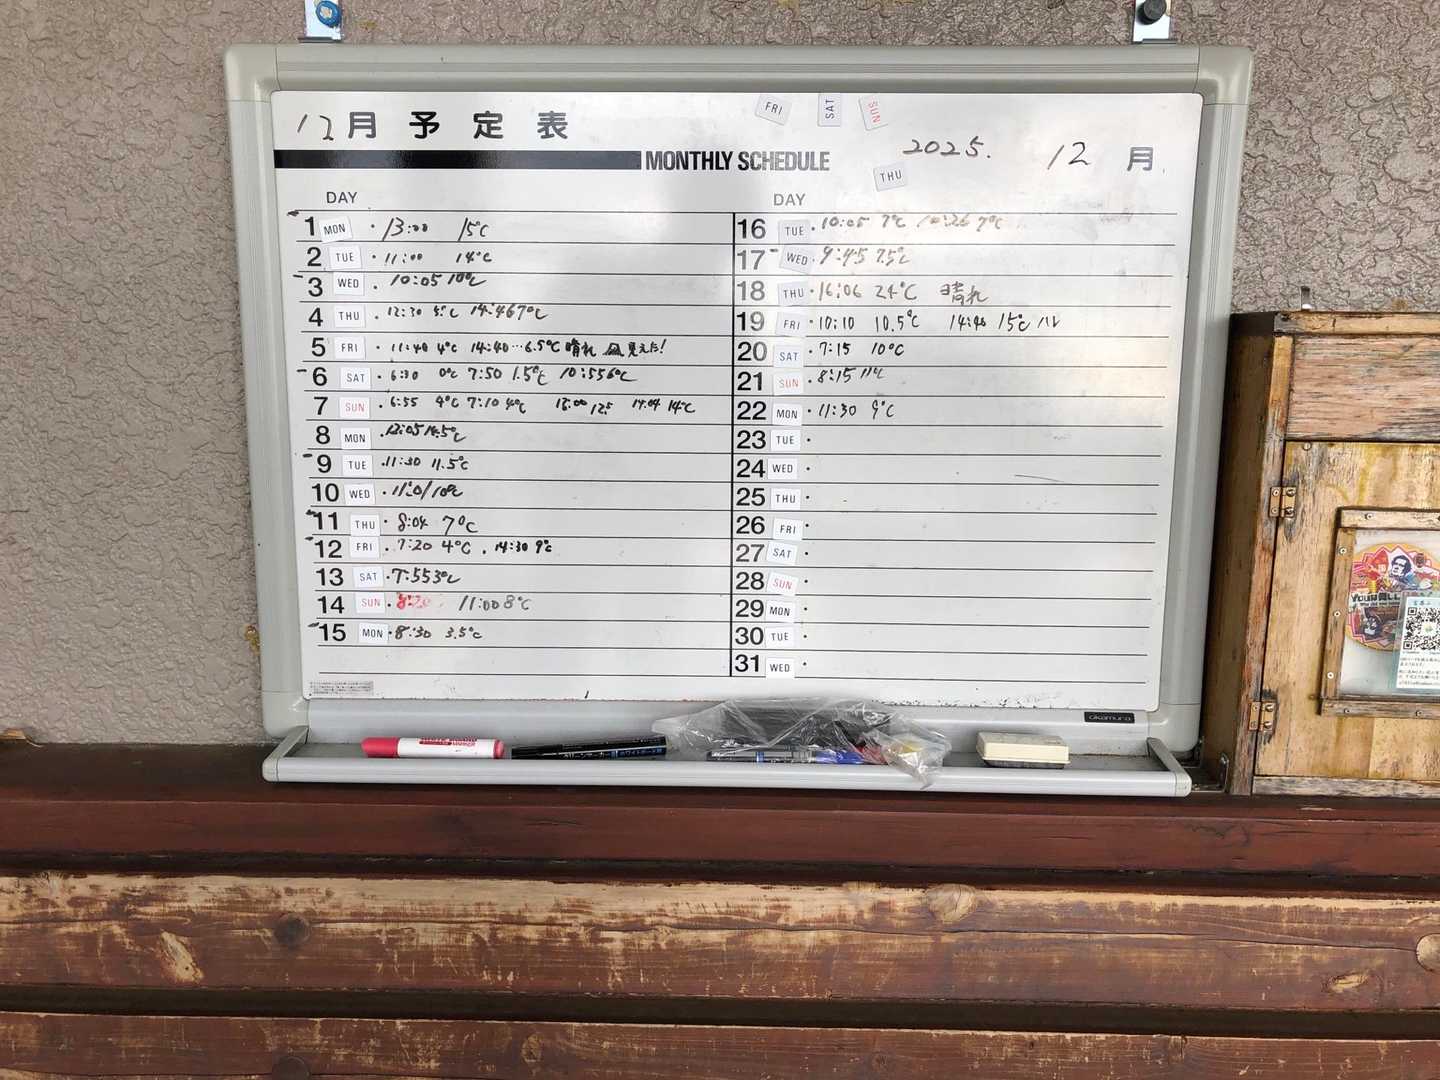 FRI SAT SUN
12月 予定表
2025. 12 月
MONTHLY SCHEDULE
THU
DAY
1 MON ・13:00 15℃
2 TUE ・11:00 14℃
3 WED ・10:05 10℃
4 THU ・12:30 5℃ 14:46 7℃
5 FRI ・11:40 4℃ 14:40…6.5℃ 晴れ 見えた!
6 SAT ・6:30 0℃ 7:50 1.5℃ 10:55 6℃
7 SUN ・6:55 4℃ 7:10 4℃ 12.5 14:04 14℃
8 MON ・12:05 14.5℃
9 TUE ・11:30 11.5℃
10 WED ・11:01 10℃
11 THU ・8:04 7℃
12 FRI ・7:20 4℃ . 14:30 9℃
13 SAT ・7:55 3℃
14 SUN ・ 11:00 8℃
15 MON ・8:30 3.5℃
DAY
16 TUE ・10:05 7℃ 10:26 7℃
17 WED ・9:45 7.5℃
18 THU ・16:06 24℃ 晴れ
19 FRI ・10:10 10.5℃ 14:40 15℃ ハレ
20 SAT ・7:15 10℃
21 SUN ・8:15 11℃
22 MON ・11:30 9℃
23 TUE ・
24 WED ・
25 THU ・
26 FRI ・
27 SAT ・
28 SUN ・
29 MON ・
30 TUE ・
31 WED ・
okamura